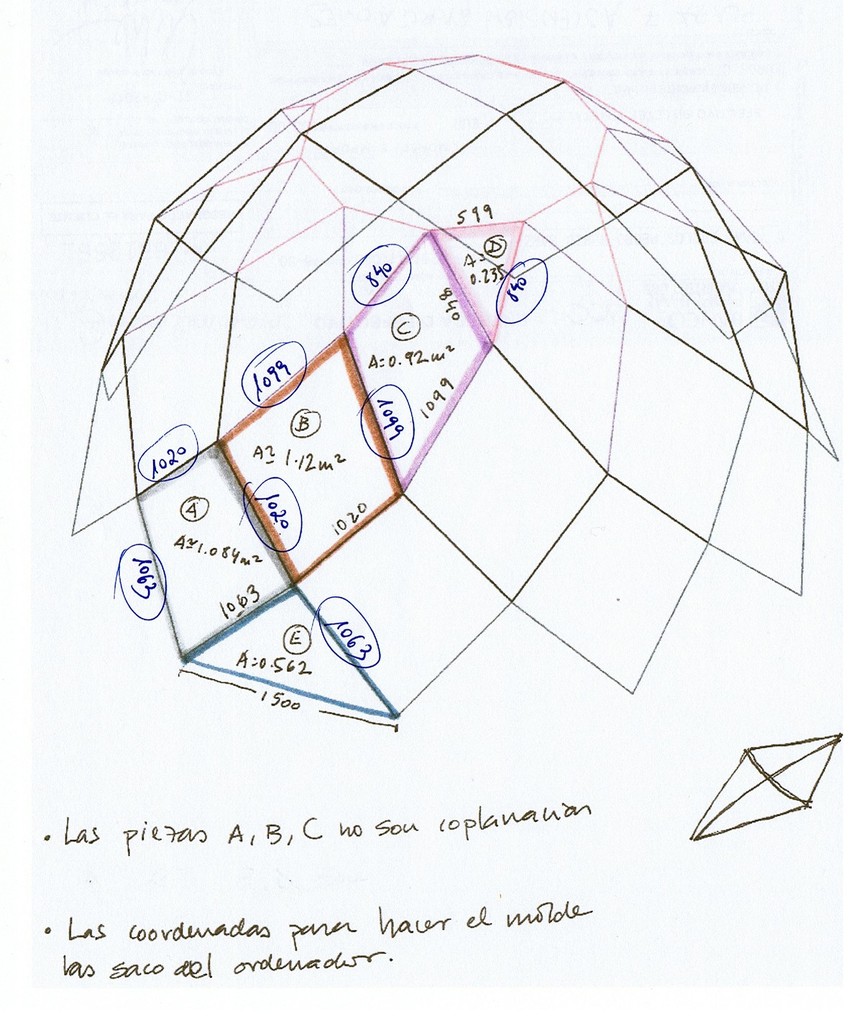 599
D
A=
0.235
840
840
840
C
A=0.92m²
1099
1099
1099
B
A≅1.12m²
1020
1020
1020
A
A≅1.084m²
1063
1063
E
A=0.562
1063
1500
• Las piezas A, B, C no son coplanarias
• Las coordenadas para hacer el molde
las saco del ordenador.